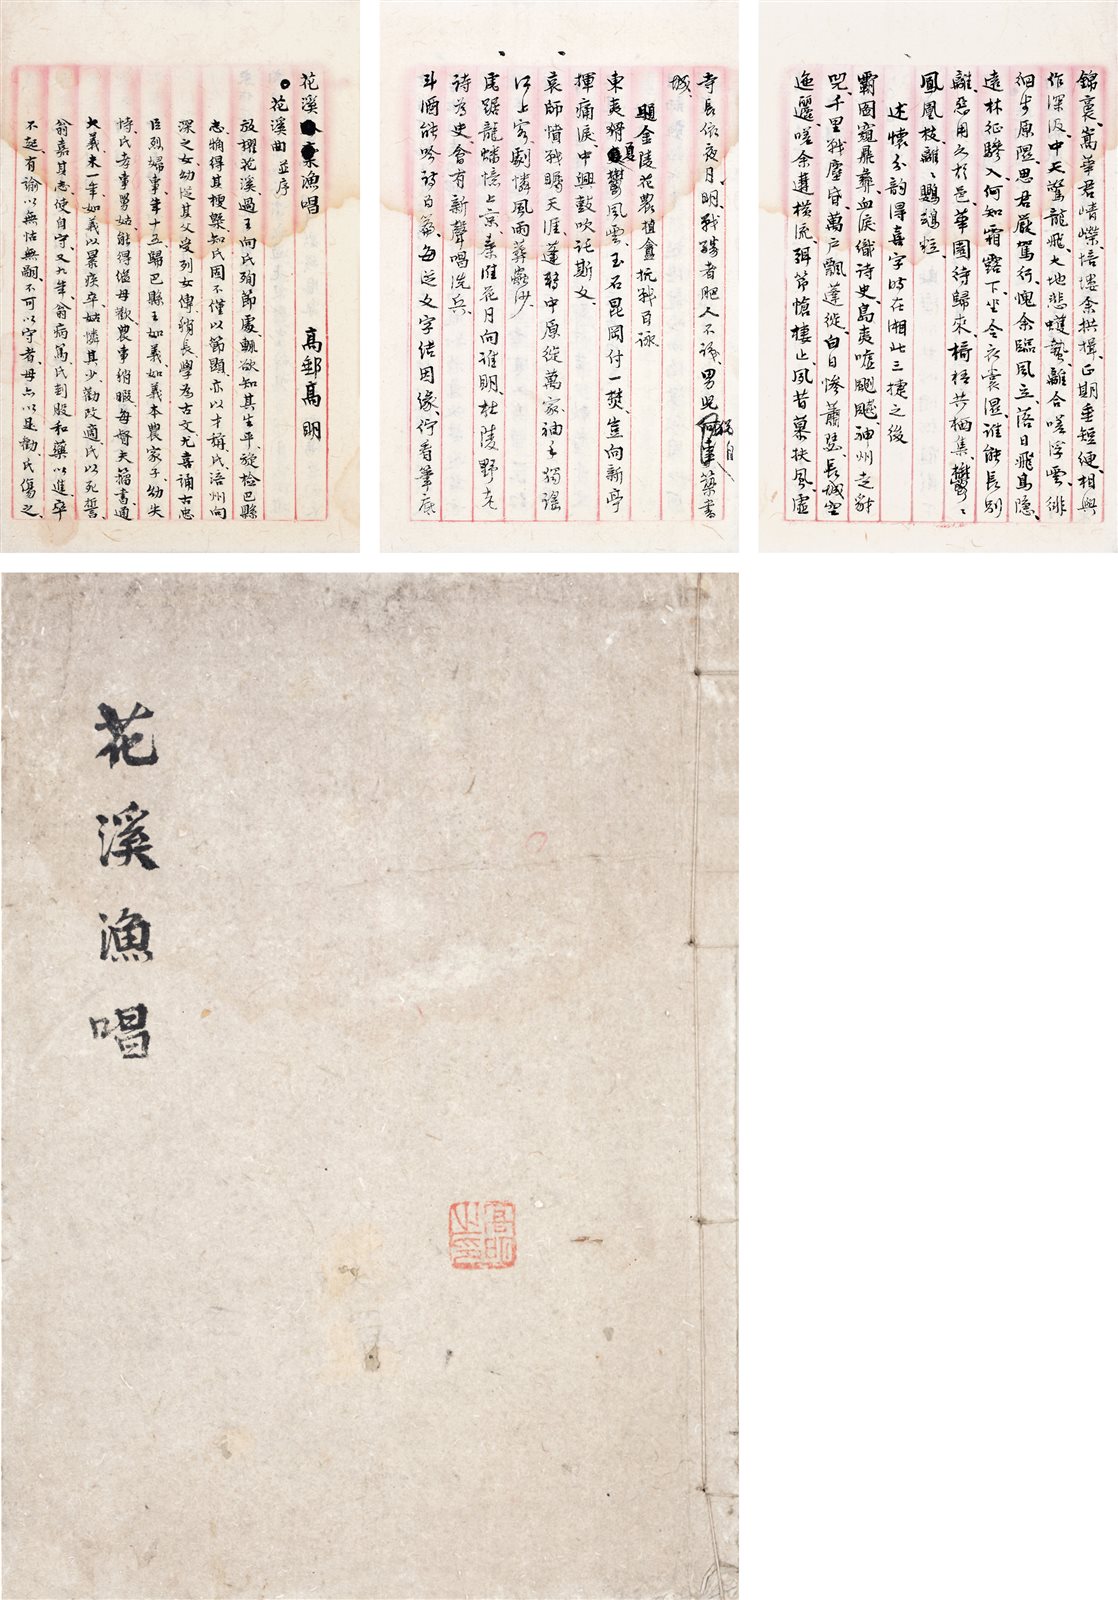 花溪漁唱 高郵高明
花溪曲 並序
放櫂花溪過王向氏殉節處輒欲知其生平旋檢巴縣
志稍得其梗槩知氏固不僅以節顯亦以才稱氏涪州向
深之女幼從其父受列女傳稍長學為古文尤喜誦古忠
臣烈婦事年十五歸巴縣王如義如義本農家子幼失
恃氏孝事舅姑能得繼母歡農事稍暇每督夫籀書通
大義未一年如義以暴疾卒姑憐其少勸改適氏以死誓
翁嘉其志使自守又九年翁病篤氏刲股和藥以進卒
不起有諭以無怙無嗣不可以守者母亦以是勸氏傷之
寺長依夜月明戰殤者肥人不識男兒獨自築書
城
題金陵花農植盦抗戰百詠
東夷猾夏鬱風雲玉石昆岡付一焚豈向新亭
揮痛淚中興鼓吹託斯文
哀師憤戰矚天涯蓬轉中原從萬家袖手獨謠
江上客劇憐風雨葬蟲沙
虎踞龍蟠憶上京秦淮花月向誰明杜陵野老
詩為史會有新聲唱洗兵
斗酒能吟詩百篇每從文字結因緣佇看筆底
錦裏嵩華君崝嶸培塿余拱揖正期垂短綆相與
作深汲中天驚龍飛大地悲蠖蟄離合嗟浮雲徘
徊步原隰思君嚴駕行愧余臨風立落日飛鳥隱
遠林征驂入何知霜露下坐令衣裳濕誰能長別
離惡用久於邑華園待歸來椅梧共栖集鬱〻
鳳凰枝離〻鸚鵡粒
述懷分韵得喜字時在湘北三捷之後
霸圖飛彝血淚徵詩史島夷噓颶飈神州走豺
兕千里戰塵昏萬戶飄蓬從白日慘蕭瑟長城空
迤邐嗟余遘橫流弭節愴棲止夙昔慕扶風虛
花溪漁唱
高明之印